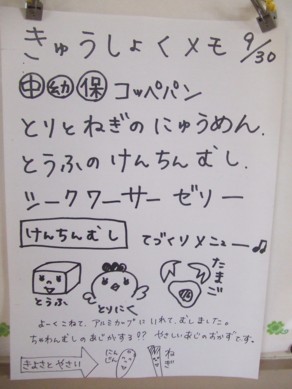 きゅうしょくメモ 9/30
中 幼 保 コッペパン
とりとねぎの にゅうめん.
とうふの けんちん むし.
シークワーサー ゼリー
けんちんむし てづくりメニュー♫
とうふ とりにく たまご
よーくこねて、アルミカップに いれて、むしました。
ちゃわんむしの あじがする?? やさしいあじのおかずです。
きょさとやさい にんじん ねぎ